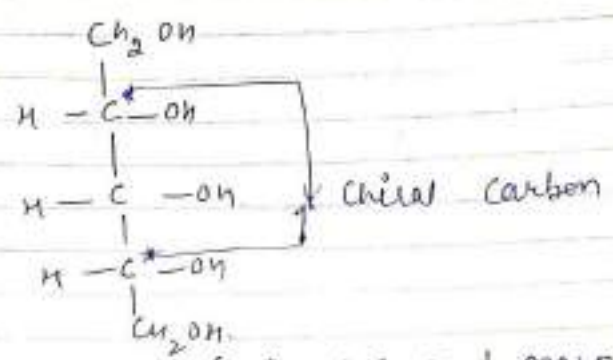 CH2 OH
H - C* - OH
H - C - OH Chiral Carbon
H - C* - OH
CH2OH.